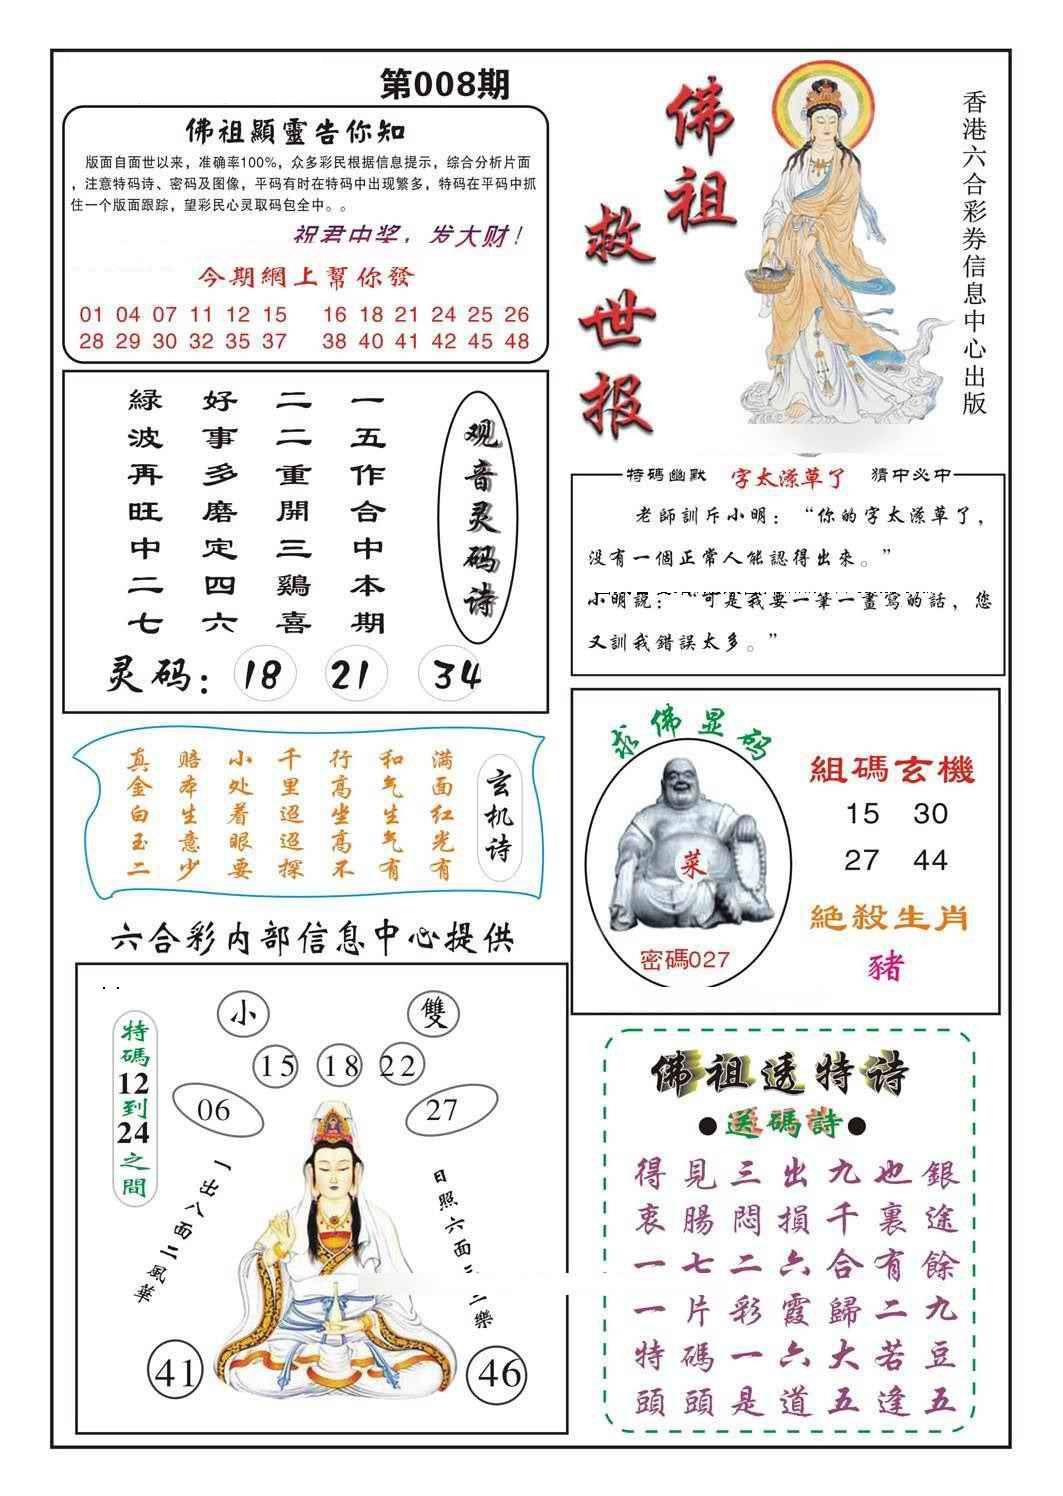 第008期
佛祖顯靈告你知
版面自面世以来，准确率100%，众多彩民根据信息提示，综合分析片面
，注意特码诗、密码及图像，平码有时在特码中出现繁多，特码在平码中抓
住一个版面跟踪，望彩民心灵取码包全中。。
祝君中奖，发大财！
今期網上幫你發
01 04 07 11 12 15 16 18 21 24 25 26
28 29 30 32 35 37 38 40 41 42 45 48
佛祖
救世报
香港六合彩券信息中心出版
观音灵码诗
一五作合中本期
二二重開三鷄喜
好事多磨定四六
緑波再旺中二七
灵码：18 21 34
特碼幽默 字太潦草了 猜中必中
老師訓斥小明：“你的字太潦草了，
没有一個正常人能認得出來。”
小明說：“可是我要一筆一畫寫的話，您
又訓我錯誤太多。”
玄机诗
满面红光有
和气生气有
行高坐高不
千里迢迢探
小处着眼要
赔本生意少
真金白玉二
求佛显码
菜
密碼027
組碼玄機
15 30
27 44
絕殺生肖
豬
六合彩内部信息中心提供
小 雙
15 18 22
06 27
特碼12到24之間
一出八面二風華
日照六面二樂
41 46
佛祖透特诗
●送碼詩●
得見三出九也銀
衷腸悶損千裏途
一七二六合有餘
一片彩霞歸二九
特碼一六大若豆
頭頭是道五逢五